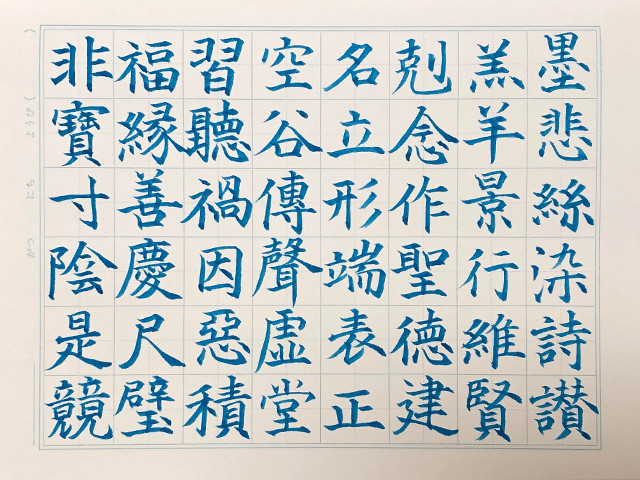 墨悲絲染詩讃
羔羊景行維賢
剋念作聖德建
名立形端表正
空谷傳聲虛堂
習聽禍因惡積
福緣善慶尺璧
非寶寸陰是競